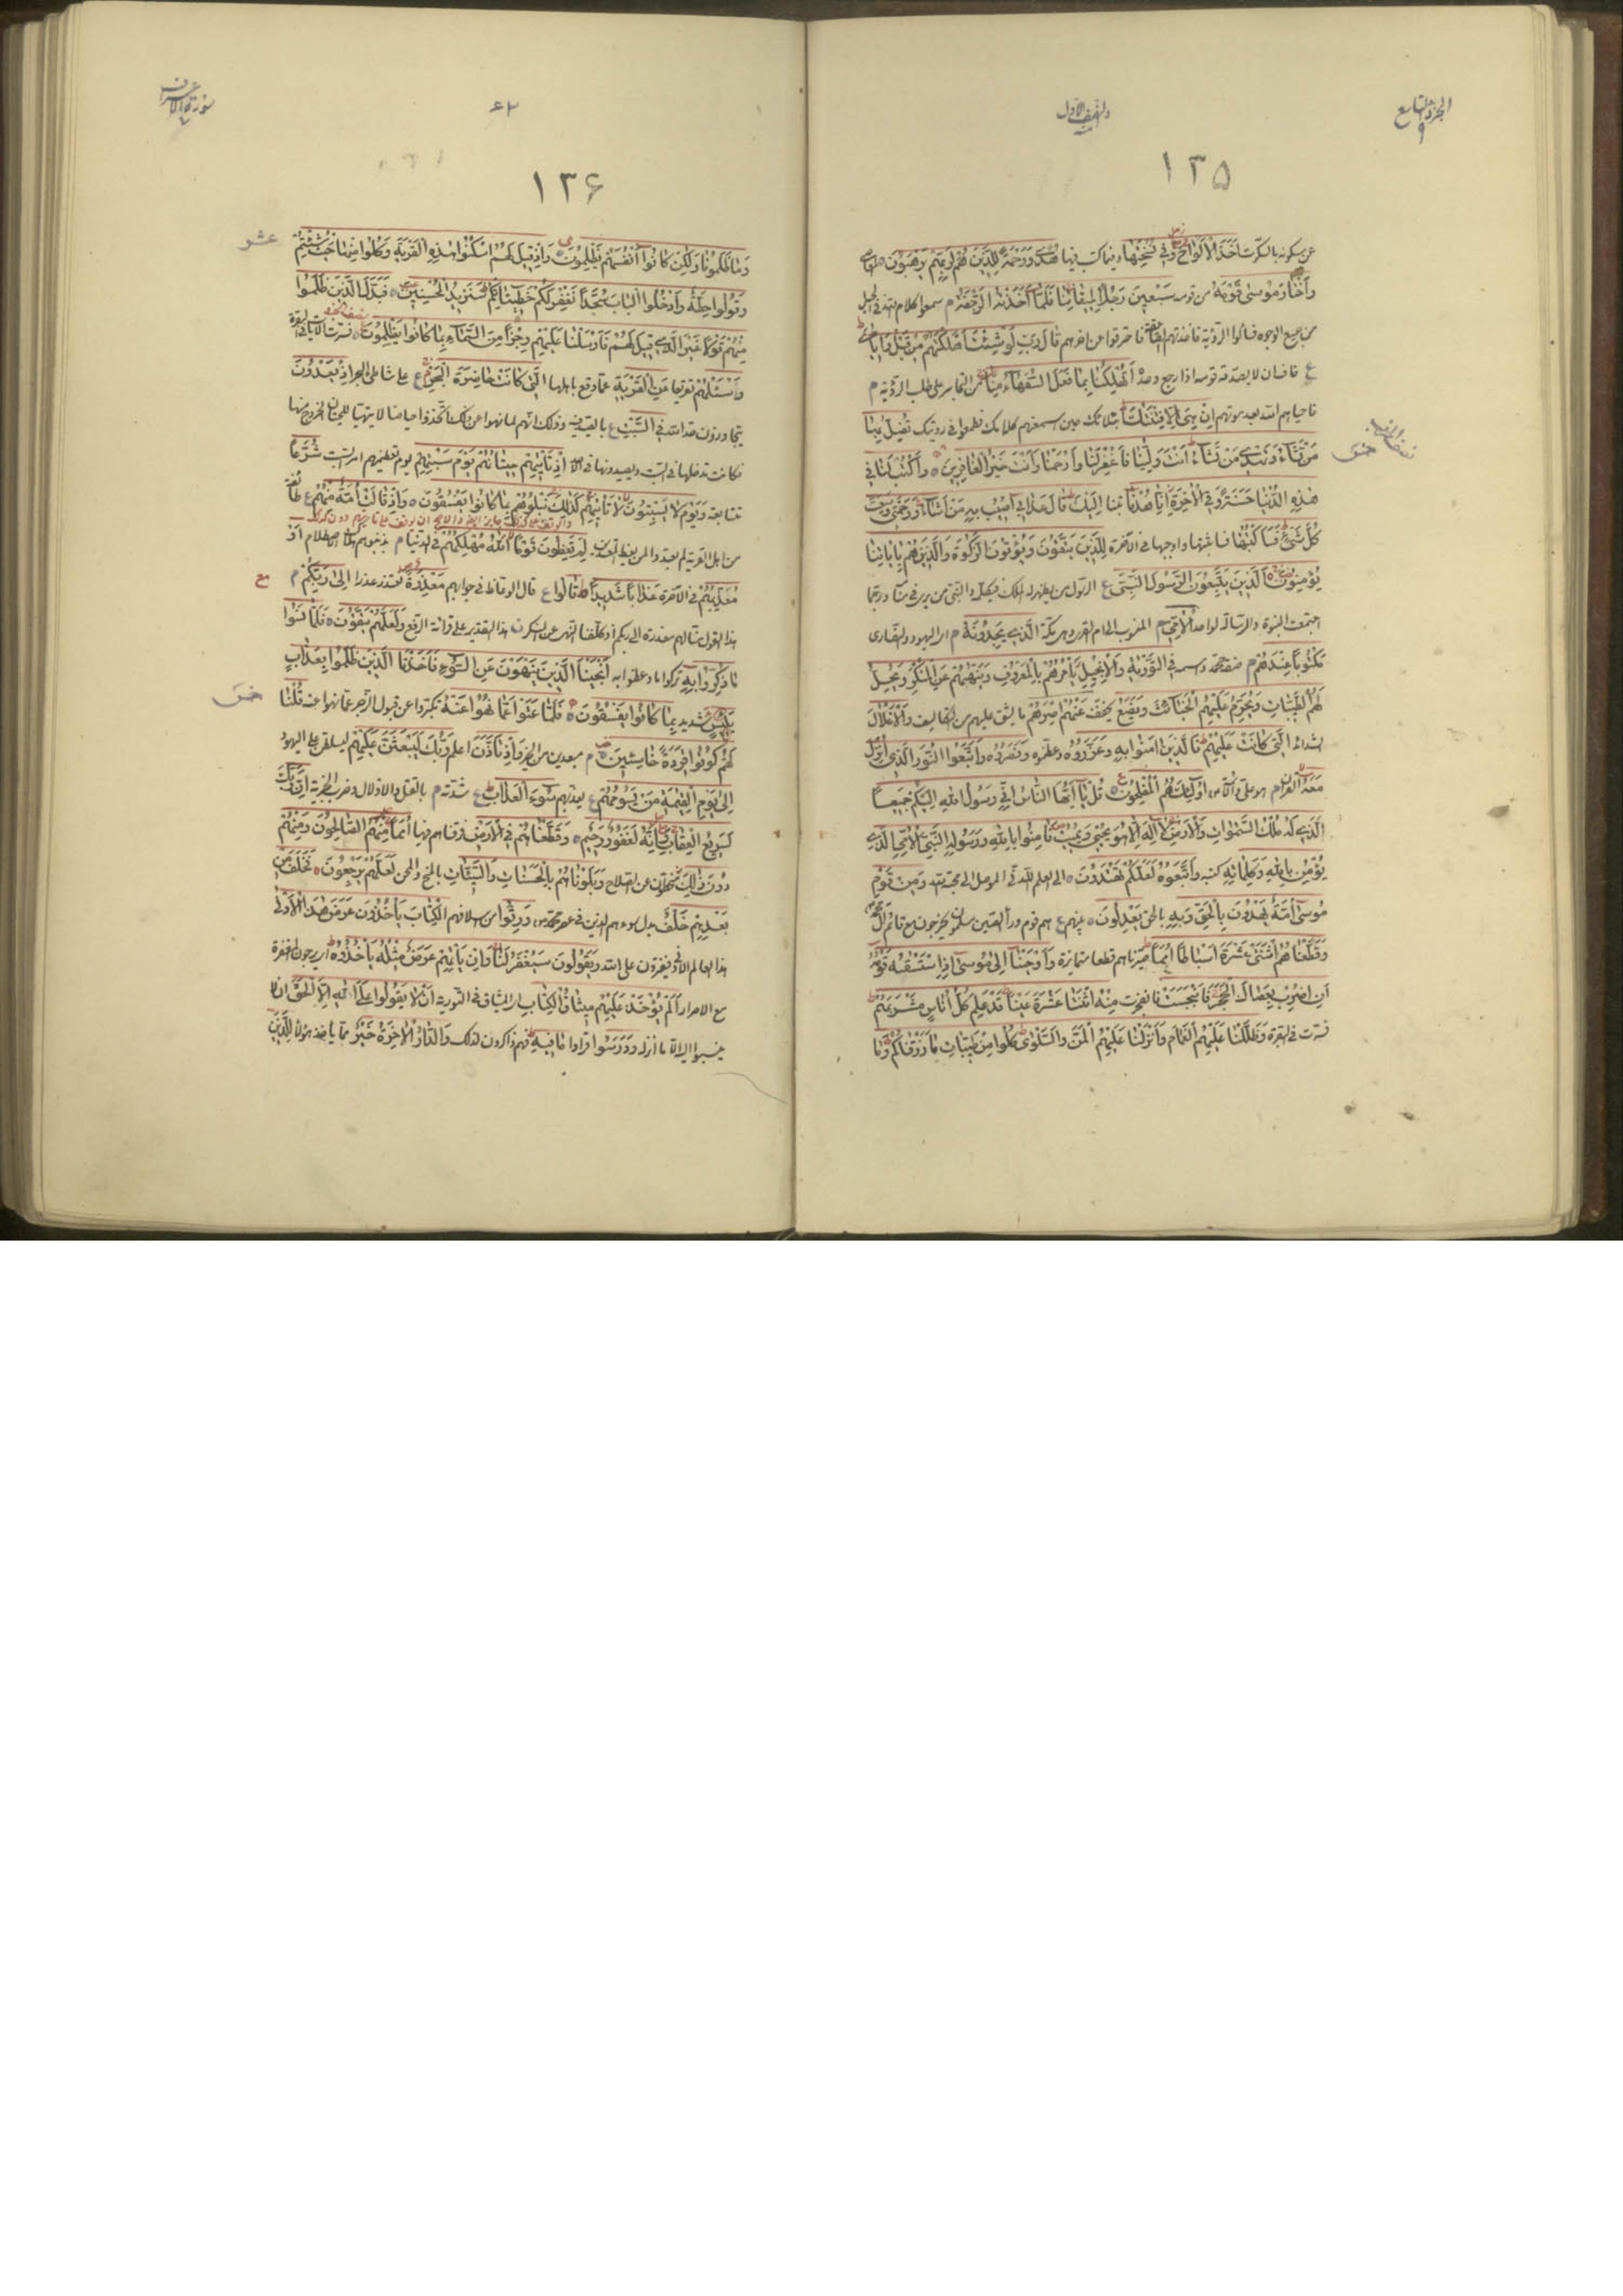 الجزء التاسع
٩
والنصف الأول
١٣٥
عن سكونه بالسكوت أَخَذَ الْأَلْوَاحَ وَفِي نُسْخَتِهَا وفيما كتب فيها هُدًى وَرَحْمَةٌ لِلَّذِينَ هُمْ لِرَبِّهِمْ يَرْهَبُونَ
وَاخْتَارَ مُوسَى قَوْمَهُ من قومه سَبْعِينَ رَجُلًا لِمِيقَاتِنَا فَلَمَّا أَخَذَتْهُمُ الرَّجْفَةُ م سمعوا كلام الله في الجبل
من جميع الوجوه فسألوا الرؤية فأخذتهم الصاعقة فاحترقوا عن آخرهم قَالَ رَبِّ لَوْ شِئْتَ أَهْلَكْتَهُمْ مِنْ قَبْلُ وَإِيَّايَ
ع خاف ان لا يصدقه قومه اذا رجع وحده أَتُهْلِكُنَا بِمَا فَعَلَ السُّفَهَاءُ مِنَّا من التجاسر على طلب الرؤية م
فاحياهم الله بعد موتهم إِنْ هِيَ إِلَّا فِتْنَتُكَ ابتلائك حين اسمعتهم كلامك فطمعوا في رؤيتك تُضِلُّ بِهَا
مَنْ تَشَاءُ وَتَهْدِي مَنْ تَشَاءُ أَنْتَ وَلِيُّنَا فَاغْفِرْ لَنَا وَارْحَمْنَا وَأَنْتَ خَيْرُ الْغَافِرِينَ ه وَاكْتُبْ لَنَا فِي
هَذِهِ الدُّنْيَا حَسَنَةً وَفِي الْآخِرَةِ إِنَّا هُدْنَا تبنا إِلَيْكَ قَالَ عَذَابِي أُصِيبُ بِهِ مَنْ أَشَاءُ وَرَحْمَتِي وَسِعَتْ
كُلَّ شَيْءٍ فَسَأَكْتُبُهَا فسأثبتها واوجبها في الآخرة لِلَّذِينَ يَتَّقُونَ وَيُؤْتُونَ الزَّكَوةَ وَالَّذِينَ هُمْ بِآيَاتِنَا
يُؤْمِنُونَ الَّذِينَ يَتَّبِعُونَ الرَّسُولَ النَّبِيَّ ع الرسول من يظهر له الملك فيكلمه والنبي من يرى في منامه وربما
اجتمعت النبوة والرسالة لواحد الْأُمِّيَّ م المنسوب الى ام القرى وهي مكة الَّذِي يَجِدُونَهُ م اى اليهود والنصارى
مَكْتُوبًا عِنْدَهُمْ م صفة محمد واسمه فِي التَّوْرَيةِ وَالْإِنْجِيلِ يَأْمُرُهُمْ بِالْمَعْرُوفِ وَيَنْهَيهُمْ عَنِ الْمُنْكَرِ وَيُحِلُّ
لَهُمُ الطَّيِّبَاتِ وَيُحَرِّمُ عَلَيْهِمُ الْخَبَائِثَ وَيَضَعُ يخفف عَنْهُمْ إِصْرَهُمْ ما يشق عليهم من التكاليف وَالْأَغْلَالَ
الشدائد الَّتِي كَانَتْ عَلَيْهِمْ فَالَّذِينَ آمَنُوا بِهِ وَعَزَّرُوهُ وعظموه وَنَصَرُوهُ وَاتَّبَعُوا النُّورَ الَّذِي أُنْزِلَ
مَعَهُ القران أُولَئِكَ هُمُ الْمُفْلِحُونَ قُلْ يَا أَيُّهَا النَّاسُ إِنِّي رَسُولُ اللهِ إِلَيْكُمْ جَمِيعًا
الَّذِي لَهُ مُلْكُ السَّمَوَاتِ وَالْأَرْضِ لَا إِلَهَ إِلَّا هُوَ يُحْيِي وَيُمِيتُ فَآمِنُوا بِاللهِ وَرَسُولِهِ النَّبِيِّ الْأُمِّيِّ الَّذِي
يُؤْمِنُ بِاللهِ وَكَلِمَاتِهِ كتبه وَاتَّبِعُوهُ لَعَلَّكُمْ تَهْتَدُونَ ه الى العلم اللدني الموصل الى محبة الله وَمِنْ قَوْمِ
مُوسَى أُمَّةٌ يَهْدُونَ بِالْحَقِّ وَبِهِ بالحق يَعْدِلُونَ ه بينهم ع هم قوم وراء الصين يخرجون مع قائم آل محمد
وَقَطَّعْنَاهُمُ اثْنَتَيْ عَشْرَةَ أَسْبَاطًا أُمَمًا صيرناهم قطعا متمايزة وَأَوْحَيْنَا إِلَى مُوسَى إِذِ اسْتَسْقَيهُ قَوْمُهُ
أَنِ اضْرِبْ بِعَصَاكَ الْحَجَرَ فَانْبَجَسَتْ فانفجرت مِنْهُ اثْنَتَا عَشْرَةَ عَيْنًا قَدْ عَلِمَ كُلُّ أُنَاسٍ مَشْرَبَهُمْ
فسرت في البقرة وَظَلَّلْنَا عَلَيْهِمُ الْغَمَامَ وَأَنْزَلْنَا عَلَيْهِمُ الْمَنَّ وَالسَّلْوَى كُلُوا مِنْ طَيِّبَاتِ مَا رَزَقْنَاكُمْ وَمَا
سورة الاعراف
١٣۶
عشر
وَمَا ظَلَمُونَا وَلَكِنْ كَانُوا أَنْفُسَهُمْ يَظْلِمُونَ وَإِذْ قِيلَ لَهُمُ اسْكُنُوا هَذِهِ الْقَرْيَةَ وَكُلُوا مِنْهَا حَيْثُ شِئْتُمْ
وَقُولُوا حِطَّةٌ وَادْخُلُوا الْبَابَ سُجَّدًا نَغْفِرْ لَكُمْ خَطِيئَاتِكُمْ سَنَزِيدُ الْمُحْسِنِينَ ه فَبَدَّلَ الَّذِينَ ظَلَمُوا
مِنْهُمْ قَوْلًا غَيْرَ الَّذِي قِيلَ لَهُمْ فَأَرْسَلْنَا عَلَيْهِمْ رِجْزًا مِنَ السَّمَاءِ بِمَا كَانُوا يَظْلِمُونَ فسرت الآيات في البقرة
وَاسْئَلْهُمْ تقريعا عَنِ الْقَرْيَةِ عما وقع باهلها الَّتِي كَانَتْ حَاضِرَةَ الْبَحْرِ ع على شاطئ البحر إِذْ يَعْدُونَ
يتجاوزون حد الله فِي السَّبْتِ ع بالصيد فيه وذلك انهم لما نهوا عن ذلك اتخذوا حياضا لا يتهيأ للحيتان الخروج منها
فكانت تدخلها في السبت ويصيدونها في الاحد إِذْ تَأْتِيهِمْ حِيتَانُهُمْ يَوْمَ سَبْتِهِمْ يوم تعظيمهم امر السبت شُرَّعًا
متتابعة وَيَوْمَ لَا يَسْبِتُونَ لَا تَأْتِيهِمْ كَذَلِكَ نَبْلُوهُمْ بِمَا كَانُوا يَفْسُقُونَ ه وَإِذْ قَالَتْ أُمَّةٌ مِنْهُمْ ع طائفة
من اهل القرية لِمَ تَعِظُونَ قَوْمًا اللهُ مُهْلِكُهُمْ في الدنيا م بذنوبهم أَوْ
مُعَذِّبُهُمْ في الآخرة عَذَابًا شَدِيدًا قَالُوا ع قال الوعاظ في جوابهم مَعْذِرَةً نعتذر عذرا إِلَى رَبِّكُمْ م
هذا القول منا لهم معذرة الى ربكم هذا التقدير على قرائة الرفع وَلَعَلَّهُمْ يَتَّقُونَ ه فَلَمَّا نَسُوا
مَا ذُكِّرُوا بِهِ تركوا ما وعظوا به أَنْجَيْنَا الَّذِينَ يَنْهَوْنَ عَنِ السُّوءِ وَأَخَذْنَا الَّذِينَ ظَلَمُوا بِعَذَابٍ
بَئِيسٍ شديد بِمَا كَانُوا يَفْسُقُونَ ه فَلَمَّا عَتَوْا عَمَّا نُهُوا عَنْهُ تكبروا عن قبول الزجر عما نهوا عنه قُلْنَا
لَهُمْ كُونُوا قِرَدَةً خَاسِئِينَ م مبعدين من الخير وَإِذْ تَأَذَّنَ اعلم رَبُّكَ لَيَبْعَثَنَّ عَلَيْهِمْ ليسلطن على اليهود
إِلَى يَوْمِ الْقِيمَةِ مَنْ يَسُومُهُمْ ع يعذبهم سُوءَ الْعَذَابِ ع شدته م بالقتل والاذلال وضرب الجزية إِنَّ رَبَّكَ
لَسَرِيعُ الْعِقَابِ وَإِنَّهُ لَغَفُورٌ رَحِيمٌ ه وَقَطَّعْنَاهُمْ فِي الْأَرْضِ فرقناهم فيها أُمَمًا مِنْهُمُ الصَّالِحُونَ وَمِنْهُمْ
دُونَ ذَلِكَ منحطون عن الصلاح وَبَلَوْنَاهُمْ بِالْحَسَنَاتِ وَالسَّيِّئَاتِ بالمنح والمحن لَعَلَّهُمْ يَرْجِعُونَ ه فَخَلَفَ مِنْ
بَعْدِهِمْ خَلْفٌ بدل سوء هم الذين في عصر محمد ص وَرِثُوا من اسلافهم الْكِتَابَ يَأْخُذُونَ عَرَضَ هَذَا الْأَدْنَى
هذا العالم الادنى ويفترون على الله وَيَقُولُونَ سَيُغْفَرُ لَنَا وَإِنْ يَأْتِهِمْ عَرَضٌ مِثْلُهُ يَأْخُذُوهُ اى يرجون المغفرة
مع الاصرار أَلَمْ يُؤْخَذْ عَلَيْهِمْ مِيثَاقُ الْكِتَابِ اى الميثاق في التورية أَنْ لَا يَقُولُوا عَلَى اللهِ إِلَّا الْحَقَّ ان لا
ينسبوا اليه الا ما انزله وَدَرَسُوا قرأوا مَا فِيهِ فهم ذاكرون لذلك وَالدَّارُ الْآخِرَةُ خَيْرٌ مما يأخذه هؤلاء لِلَّذِينَ